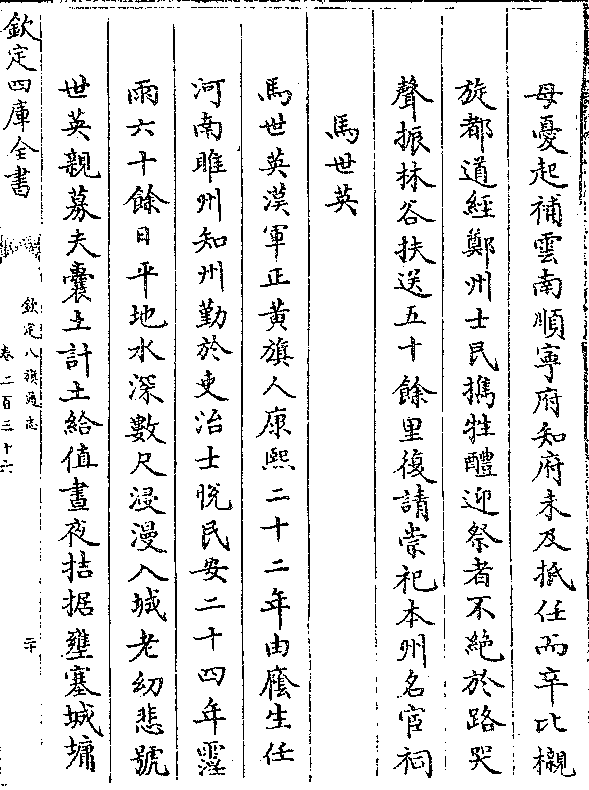 母憂起補雲南順寧府知府未及抵任而卒比櫬
旋都道經鄭州士民擕牲醴迎祭者不絶於路哭
聲振林谷扶送五十餘里復請崇祀本州名宦祠
馬世英
馬世英漢軍正黄旗人康熙二十二年由廕生任
河南睢州知州勤於吏治士悅民安二十四年霪
雨六十餘日平地水深數尺浸漫入城老幼悲號
世英親募夫囊土計土給值晝夜拮据壅塞城墉
欽定四庫全書
欽定八旗通志
卷二百三十六
二十